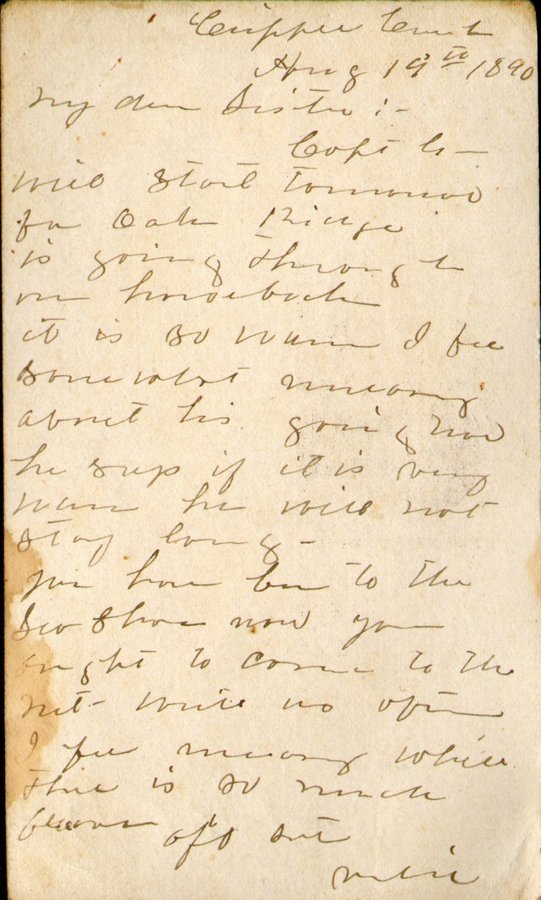 Aug 19th 1890
My dear Sister :-
Capt G-
will start tomorrow
for Oak Ridge
is going through
on horseback
it is so warm I feel
somewhat uneasy
about his going now
he says if it is very
warm he will not
stay long -
You have been to the
Sea Shore now you
ought to come to the
write us often
I feel uneasy while
there is so much